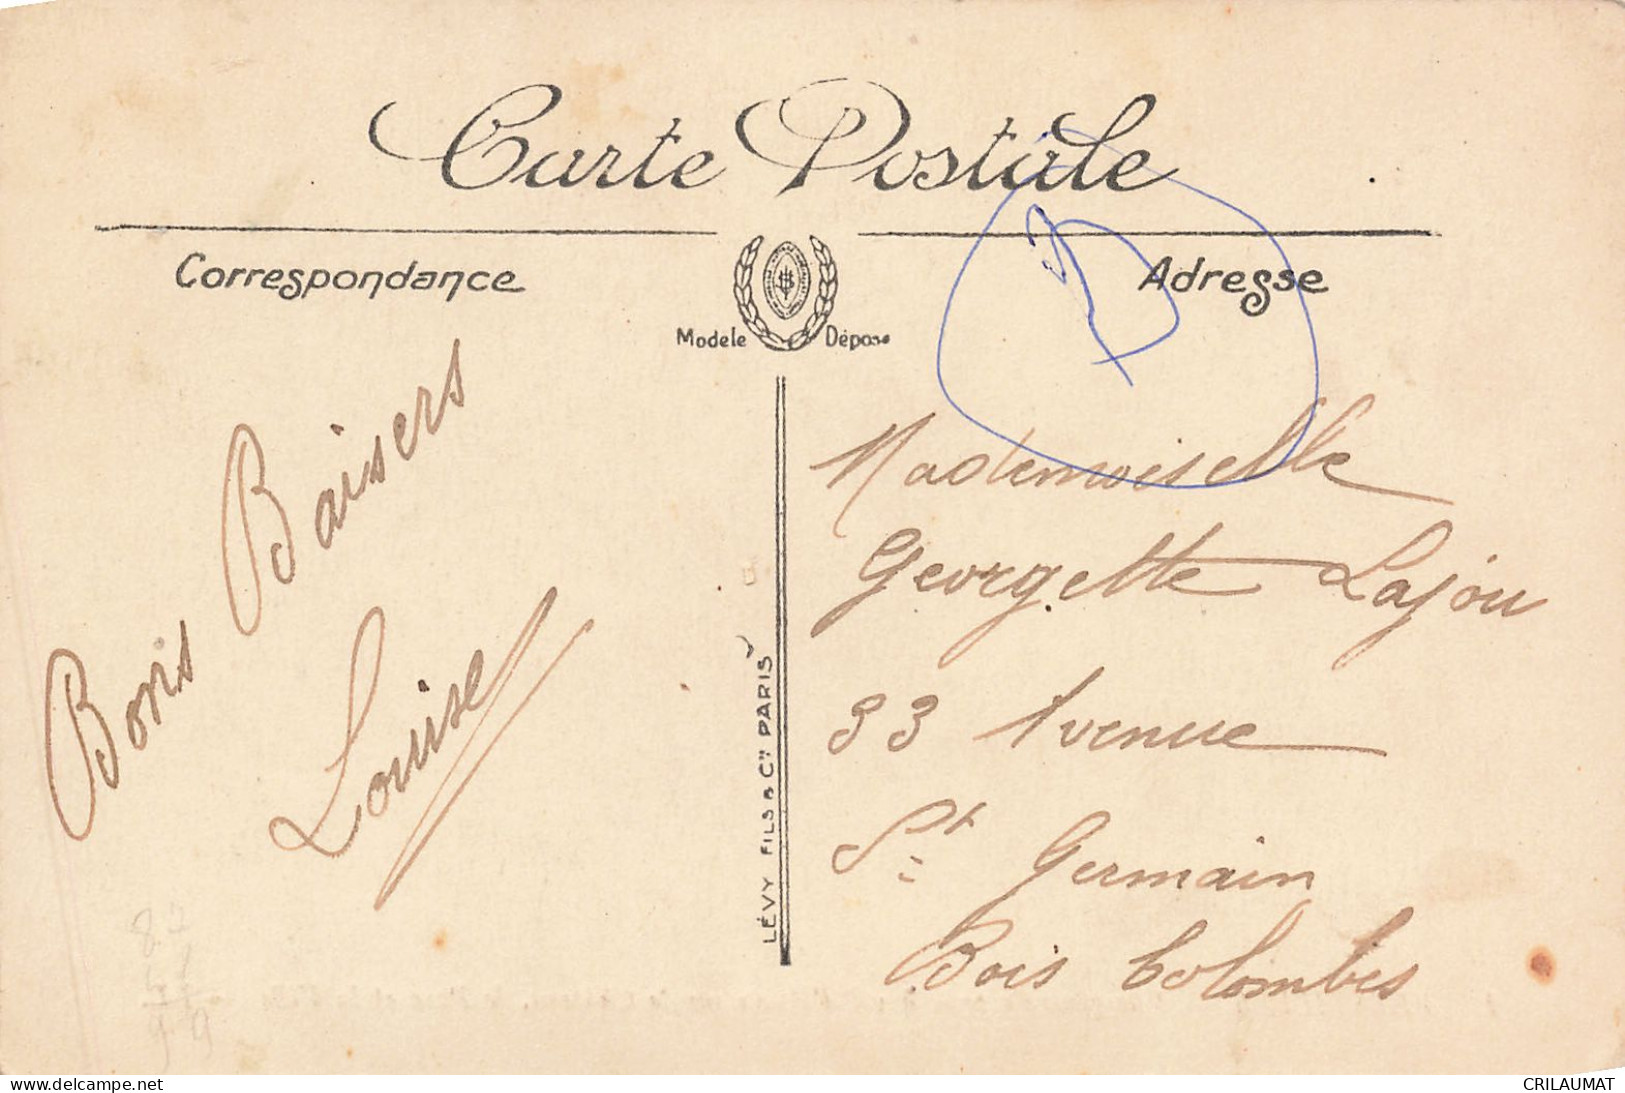 Carte Postale
Correspondance
Adresse
Modèle Déposé
Bons Baisers
Louise
LÉVY FILS & Cie PARIS
Mademoiselle
Georgette Lajou
33 Avenue
St Germain
Bois Colombes
www.delcampe.net
CRILAUMAT